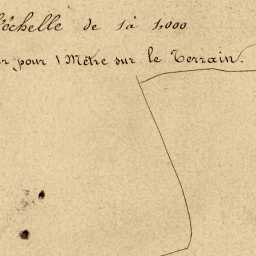 l'échelle de 1 à 1,000
pour 1 Mètre sur le Terrain.